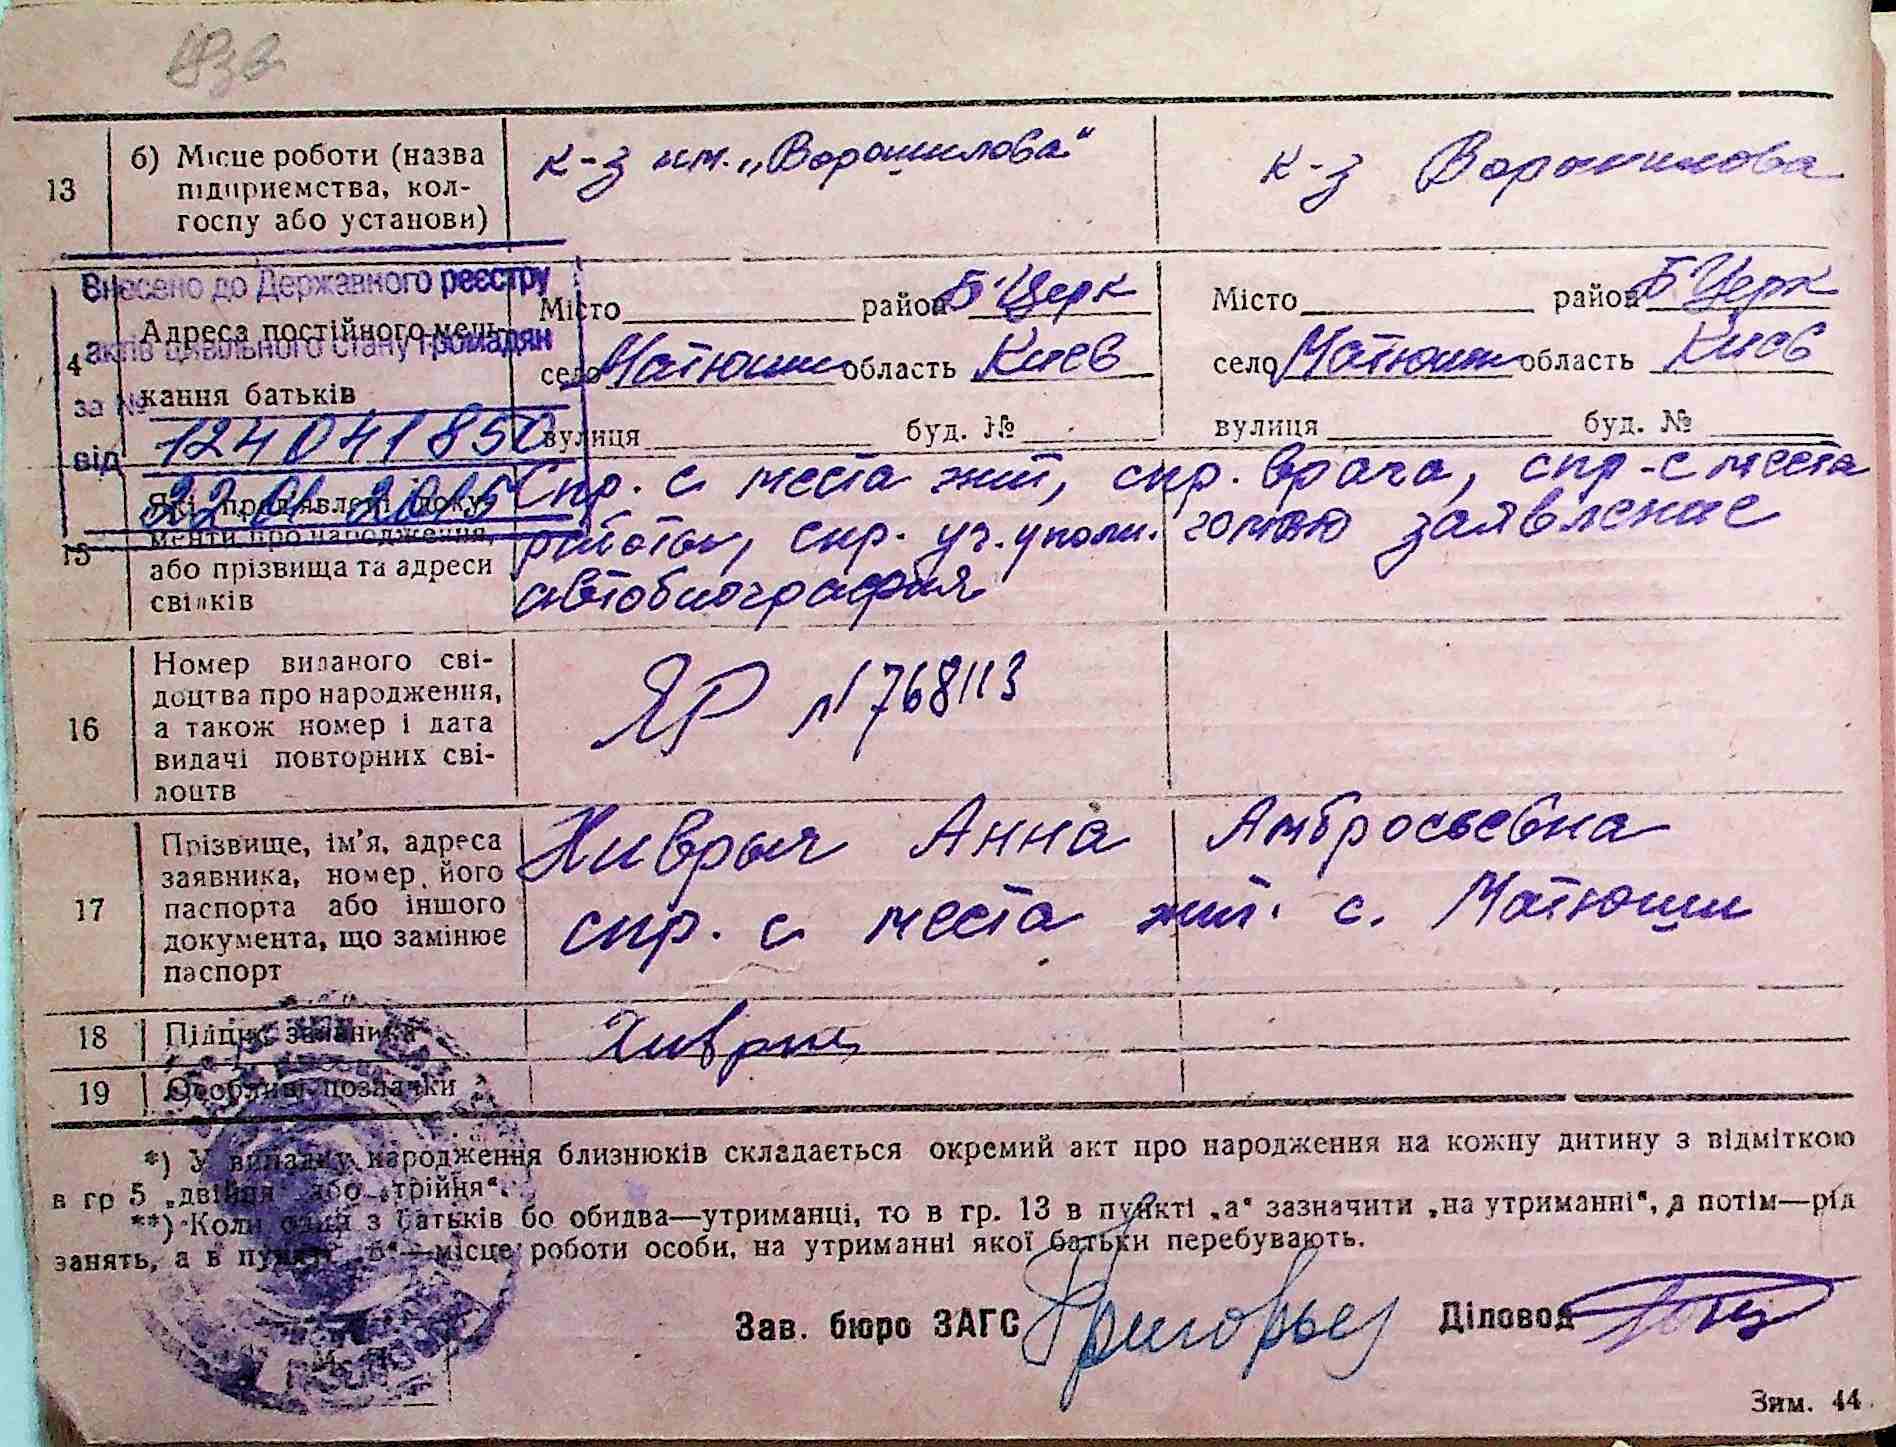 13
б) Місце роботи (назва
підприємства, кол-
госпу або установи)
к-з им. „Ворошилова“
к-з Ворошилова
Внесено до Державного реєстру
актів цивільного стану громадян
за №
124041850
від 22.01.2015
Адреса постійного меш-
кання батьків
Місто район Б-Церк
село Матюши область Киев
вулиця буд. №
Місто район Б Церк
село Матюши область Киев
вулиця буд. №
15
Які пред'явлені доку-
менти про народження,
або прізвища та адреси
свідків
Спр. с места жит, спр. врача, спр-с места
работы, спр. уч. уполн. заявление
автобиография
16
Номер виданого сві-
доцтва про народження,
а також номер і дата
видачі повторних сві-
доцтв
ЯР №768113
17
Прізвище, ім'я, адреса
заявника, номер його
паспорта або іншого
документа, що замінює
паспорт
Хиврыч Анна Амбросьевна
спр. с места жит. с. Матюши
18
Підпис заявника
19
Особливі позначки
*) У випадку народження близнюків складається окремий акт про народження на кожну дитину з відміткою
в гр 5 „двійня“ або „трійня“.
**) Коли один з батьків бо обидва—утриманці, то в гр. 13 в пункті „а“ зазначити „на утриманні“, а потім—рід
занять, а в пункті „б“—місце роботи особи, на утриманні якої батьки перебувають.
Зав. бюро ЗАГС
Діловод
Зим. 44